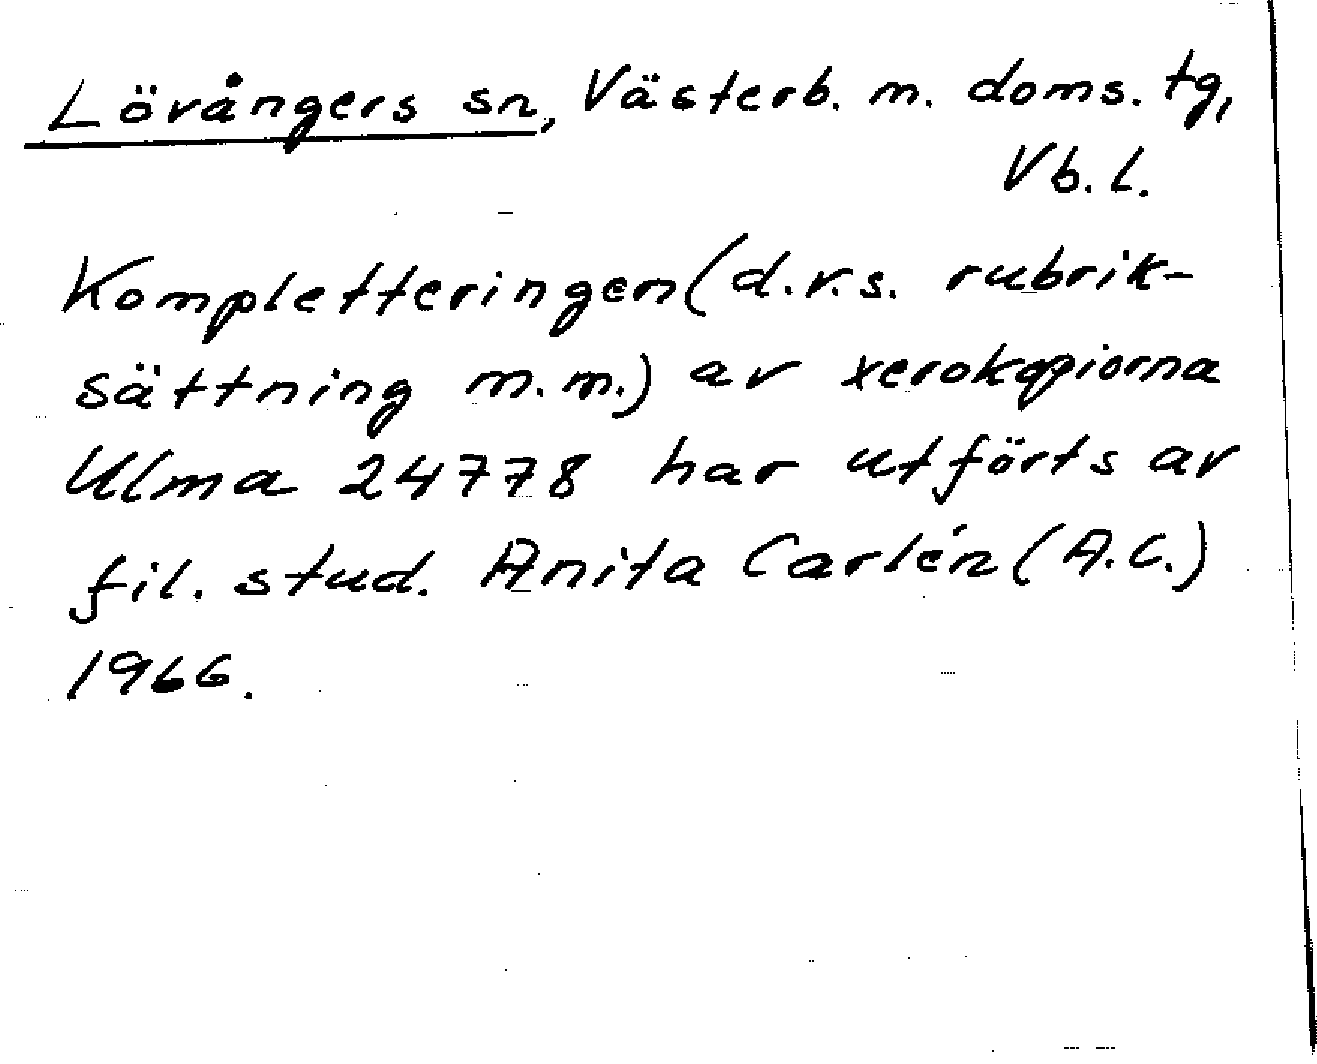 Lövångers sn, Västerb. m. doms. tg,
Vb. l.
Kompletteringen (d.v.s. rubrik-
sättning m.m.) av xerokopiorna
Ulma 24778 har utförts av
fil. stud. Anita Carlén (A.C.)
1966.